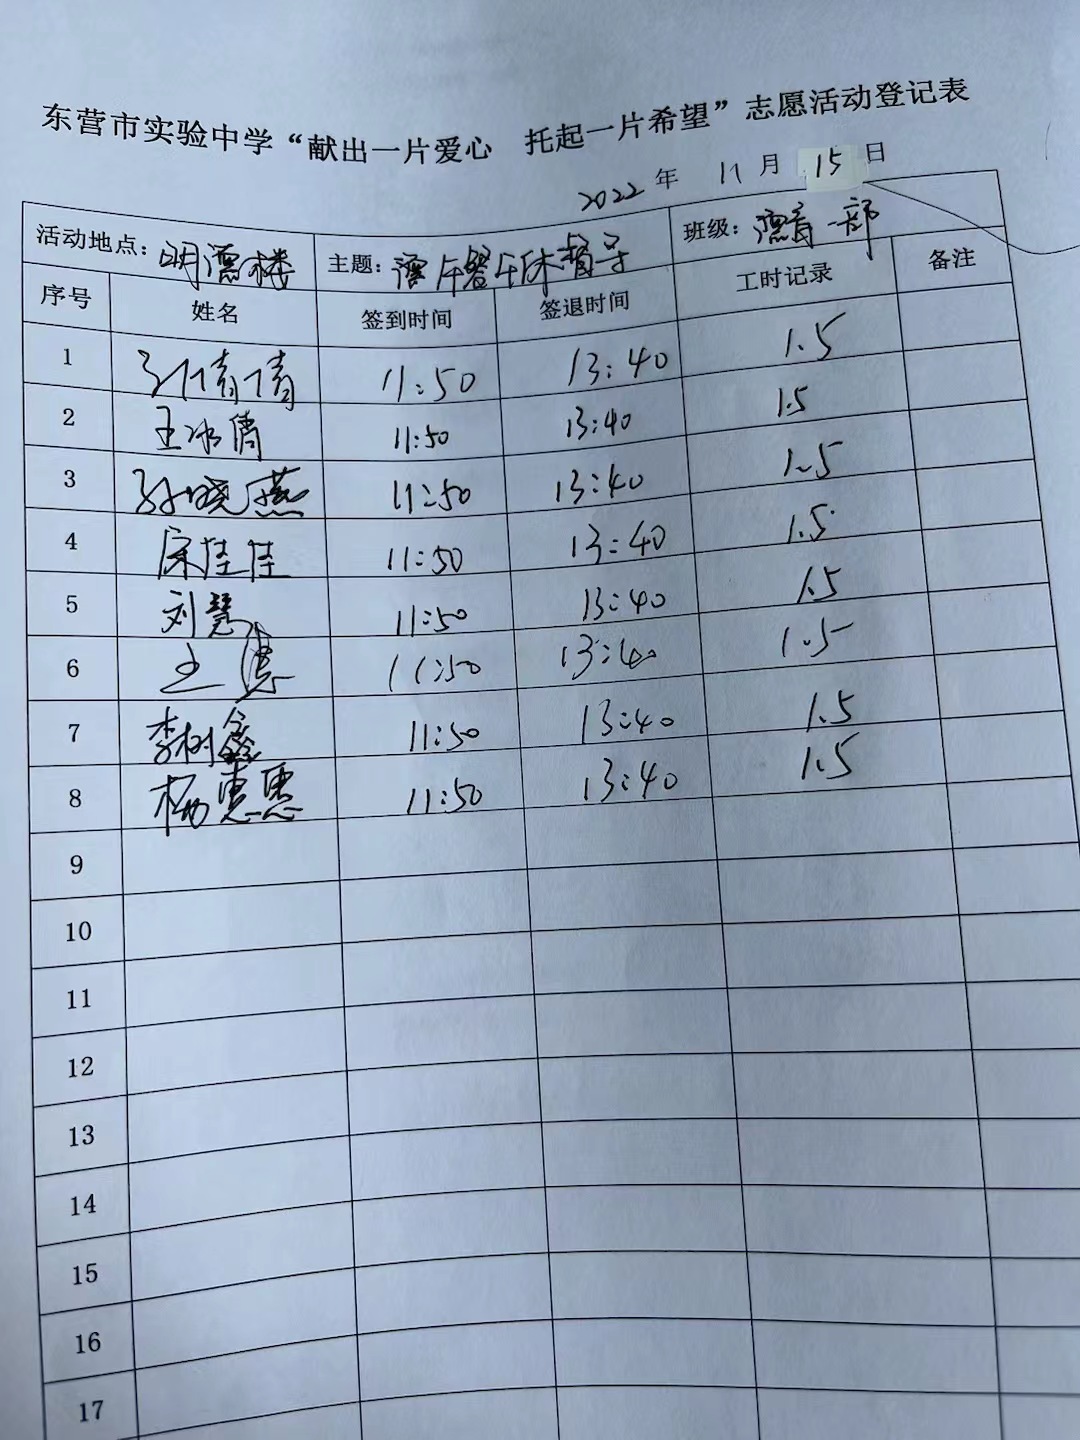 东营市实验中学“献出一片爱心 托起一片希望”志愿活动登记表
2022年 11月 15日
活动地点：明德楼 主题：午休督导 班级：德育一部
序号 姓名 签到时间 签退时间 工时记录 备注
1 孙倩倩 11:50 13:40 1.5
2 王冰倩 11:50 13:40 1.5
3 孙晓燕 11:50 13:40 1.5
4 宋佳佳 11:50 13:40 1.5
5 刘慧 11:50 13:40 1.5
6 王 11:50 13:40 1.5
7 李树鑫 11:50 13:40 1.5
8 杨惠惠 11:50 13:40 1.5
9
10
11
12
13
14
15
16
17